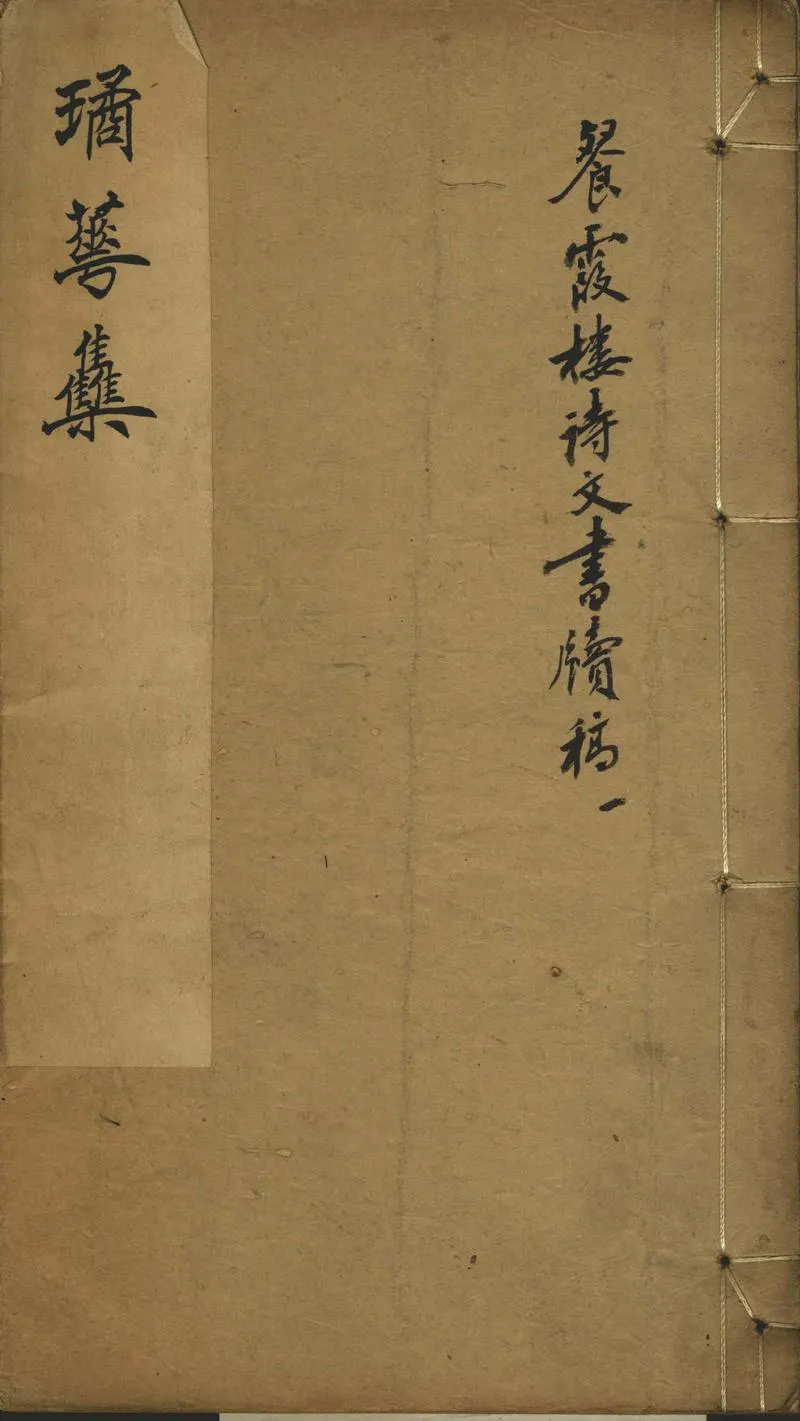 餐霞樓詩文書牘稿一
璚蕐雧